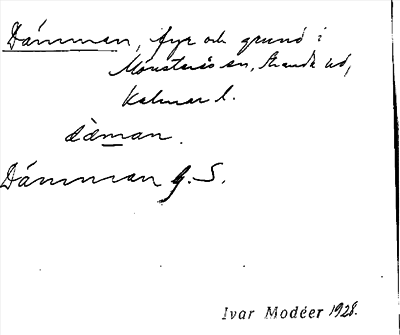 Dämman, fyr och grund i
Mönsterås sn, Stranda hd,
Kalmar l.
dàman.
Dämman G. S.
Ivar Modéer 1928.